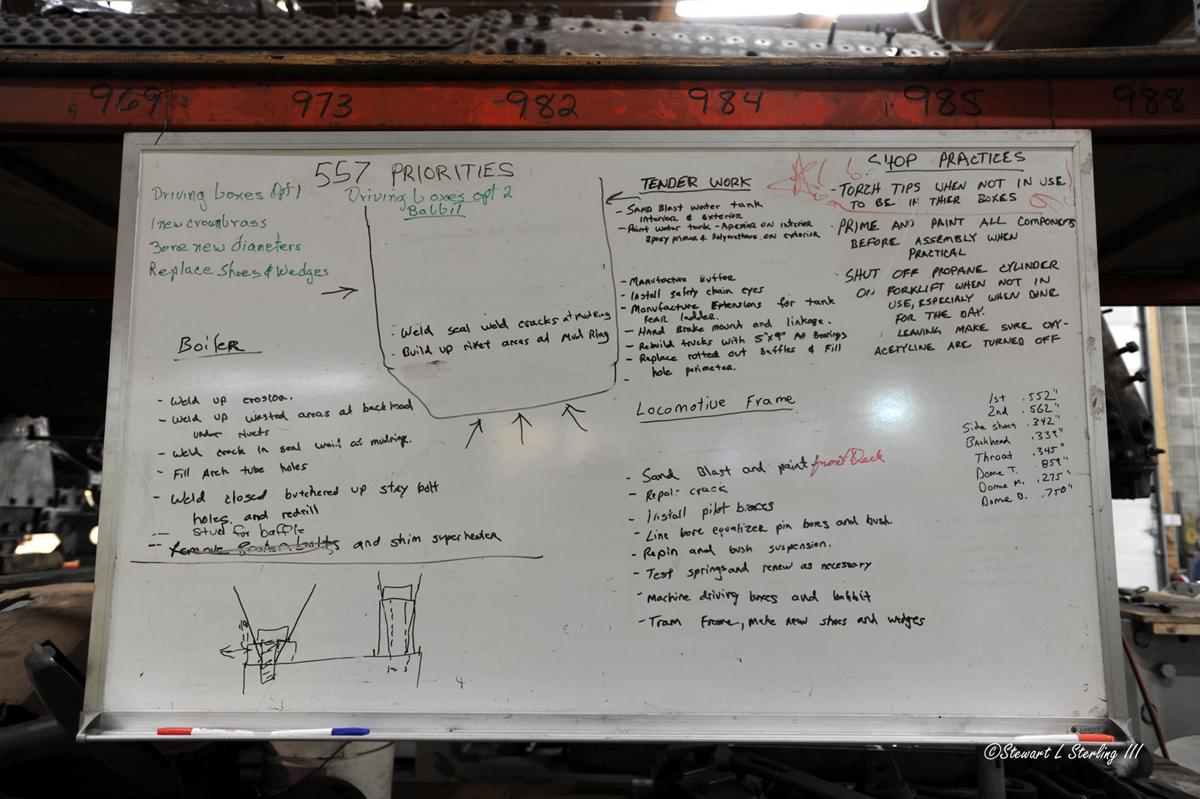 969 973 982 984 985 988
557 PRIORITIES
Driving boxes opt 1
1 new crownbrass
Bore new diameters
Replace Shoes & Wedges
Driving boxes opt 2
Babbit
- Weld seal weld cracks at mudring
- Build up rivet areas at Mud Ring
Boiler
- Weld up erosion.
- Weld up wasted areas at backhead
under rivets
- Weld crack in seal weld at mudring.
- Fill Arch tube holes
- Weld closed butchered up stay bolt
holes and redrill
- stud for baffle
- and shim superheader
TENDER WORK
- Sand Blast water tank
interior & exterior
- Paint water tank - Apexior on interior
Epoxy primer & Polyurethane on exterior
- Manufacture Buffer
- Install safety chain eyes
- Manufacture Extensions for tank
rear ladder.
- Hand Brake mount and linkage.
- Rebuild trucks with 5"x9" AP Bearings
- Replace rotted out Baffles & Fill
hole perimeter.
-
Locomotive Frame
- Sand Blast and paint front Deck
- Repair crack
- Install pilot braces
- Line bore equalizer pin bores and bush.
- Repin and bush suspension.
- Test springs and renew as necessary
- Machine driving boxes and babbit
- Tram Frame, make new shoes and wedges
SHOP PRACTICES
- TORCH TIPS WHEN NOT IN USE
TO BE IN THIER BOXES
PRIME AND PAINT ALL COMPONENTS
BEFORE ASSEMBLY WHEN
PRACTICAL
SHUT OFF PROPANE CYLINDER
ON FORKLIFT WHEN NOT IN
USE, ESPECIALY WHEN DONE
FOR THE DAY.
LEAVING MAKE SURE OXY-
ACETYLINE ARE TURNED OFF
1st .552"
2nd .562"
Side sheet .342"
Backhead .339"
Throat .345"
Dome T. .859"
Dome M. .275"
Dome B. .750"
©Stewart L Sterling III